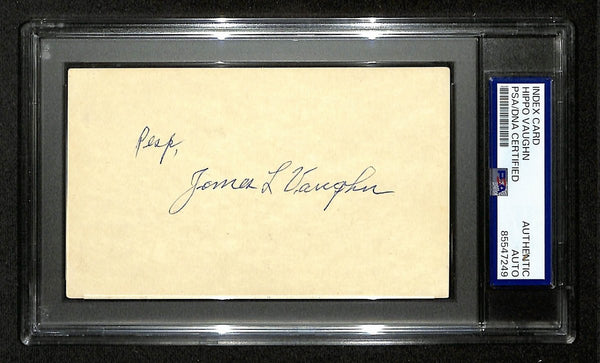 Resp,
James L Vaughn
INDEX CARD
HIPPO VAUGHN
PSA/DNA CERTIFIED
PSA
AUTHENTIC
AUTO
85547249